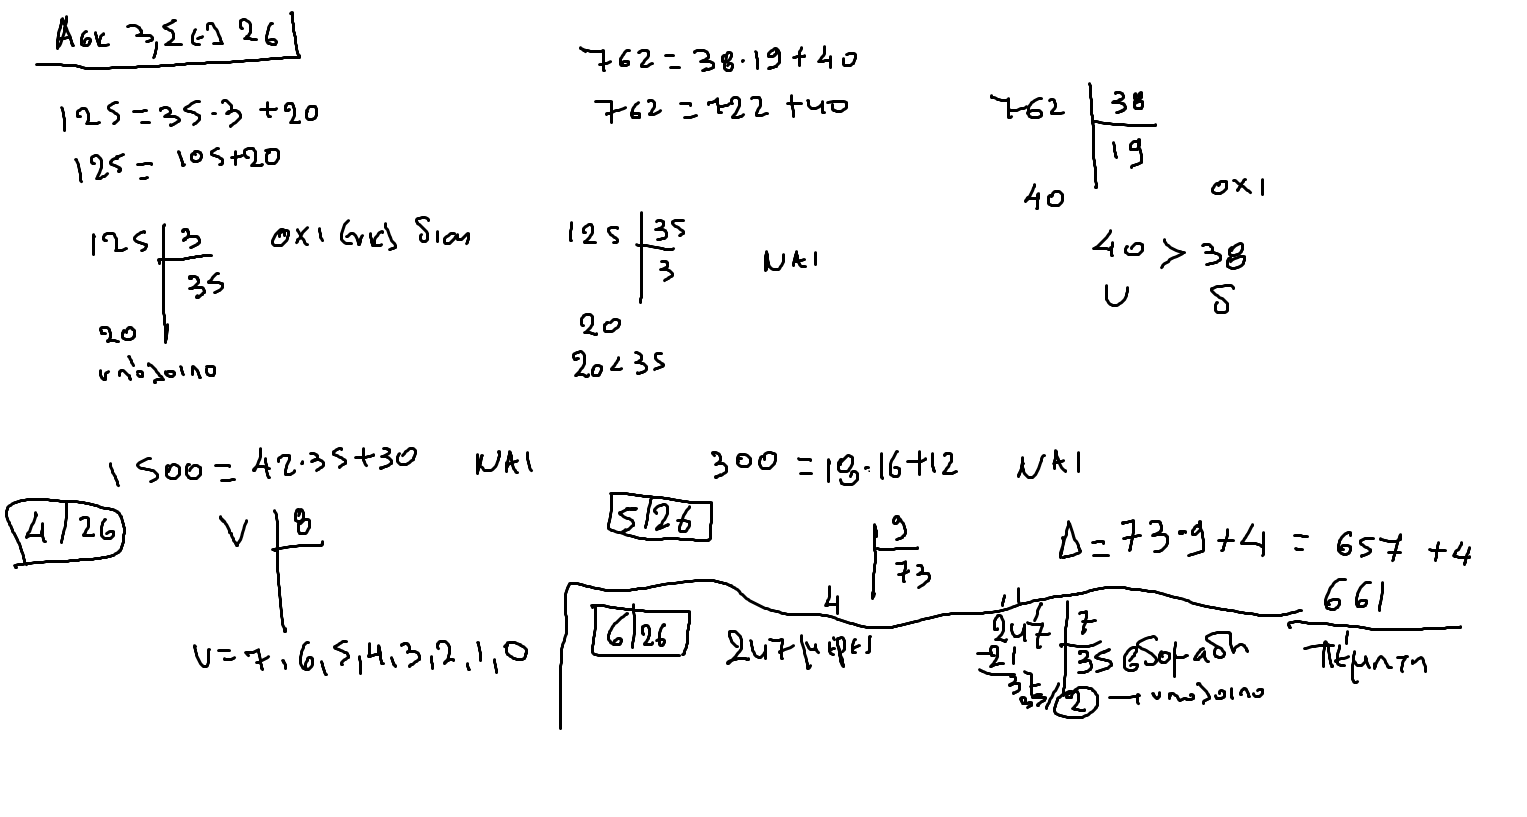 Ασκ 3, Σελ 26
125 = 35·3 + 20
125 = 105+20
762 = 38·19 + 40
762 = 722 + 40
762 38
19
40 ΟΧΙ
40 > 38
υ δ
125 3
35
20
υπόλοιπο
ΟΧΙ διαι
125 35
3
20
20 < 35
ΝΑΙ
1500 = 42·35+30 ΝΑΙ
300 = 18·16+12 ΝΑΙ
4/26
ν 8
υ = 7, 6, 5, 4, 3, 2, 1, 0
5/26
9
73
4
Δ = 73·9+4 = 657 + 4
661
6/26
247 μερες
247 7
-21 35 εβδομαδη
37
35/
2 → υπολοιπο
Πέμπτη